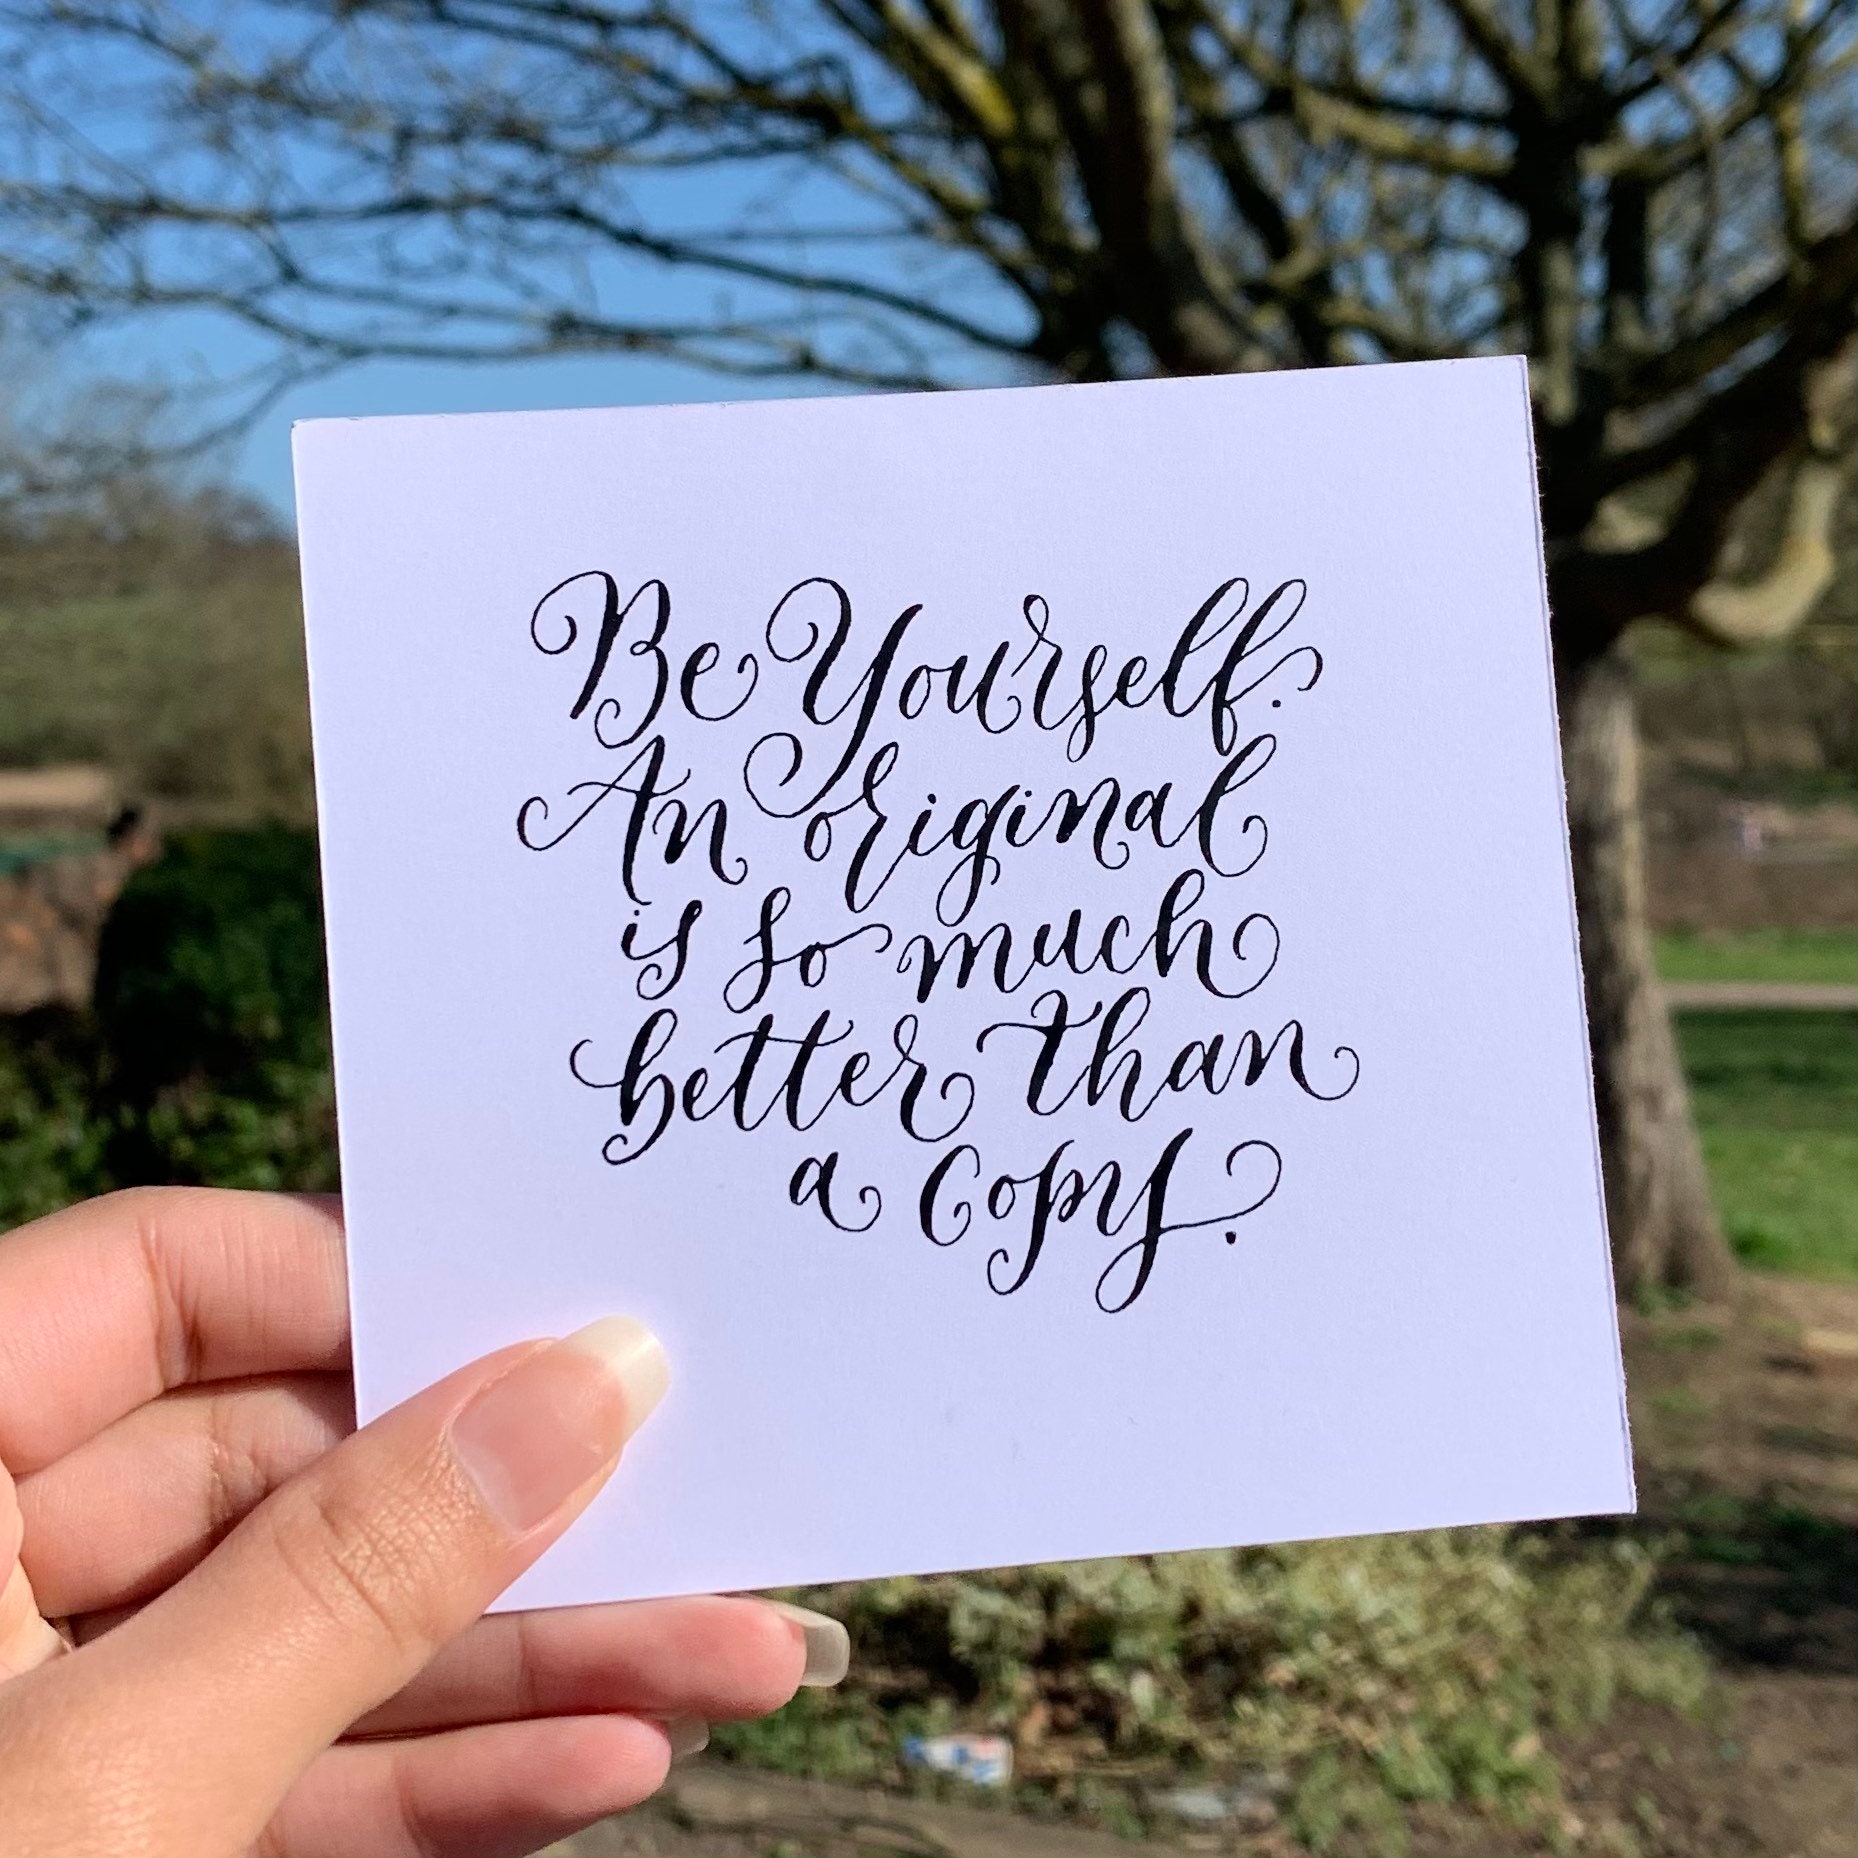 Be Yourself.
An original
is so much
better than
a copy.